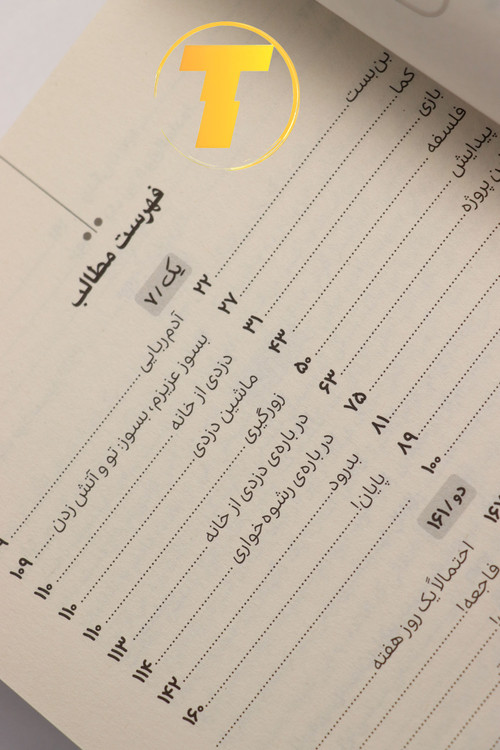 فهرست مطالب
یک / ۷
بن‌بست ۲۲
کما ۲۷
بازی ۳۱
فلسفه ۴۳
پیدایش ۵۰
پروژه ۶۳
۷۵
۸۱
۸۹
۱۰۰
آدم‌ربایی
بسوز عزیزم، بسوز: تو و آتش زدن ۱۰۹
دزدی از خانه ۱۱۰
ماشین دزدی ۱۱۰
زورگیری ۱۱۰
درباره‌ی دزدی از خانه ۱۱۳
درباره‌ی رشوه خواری ۱۱۴
ببرود ۱۴۲
پایان! ۱۶۰
دو / ۱۶۱
احتمالاً یک روز هفته
فاجعه!